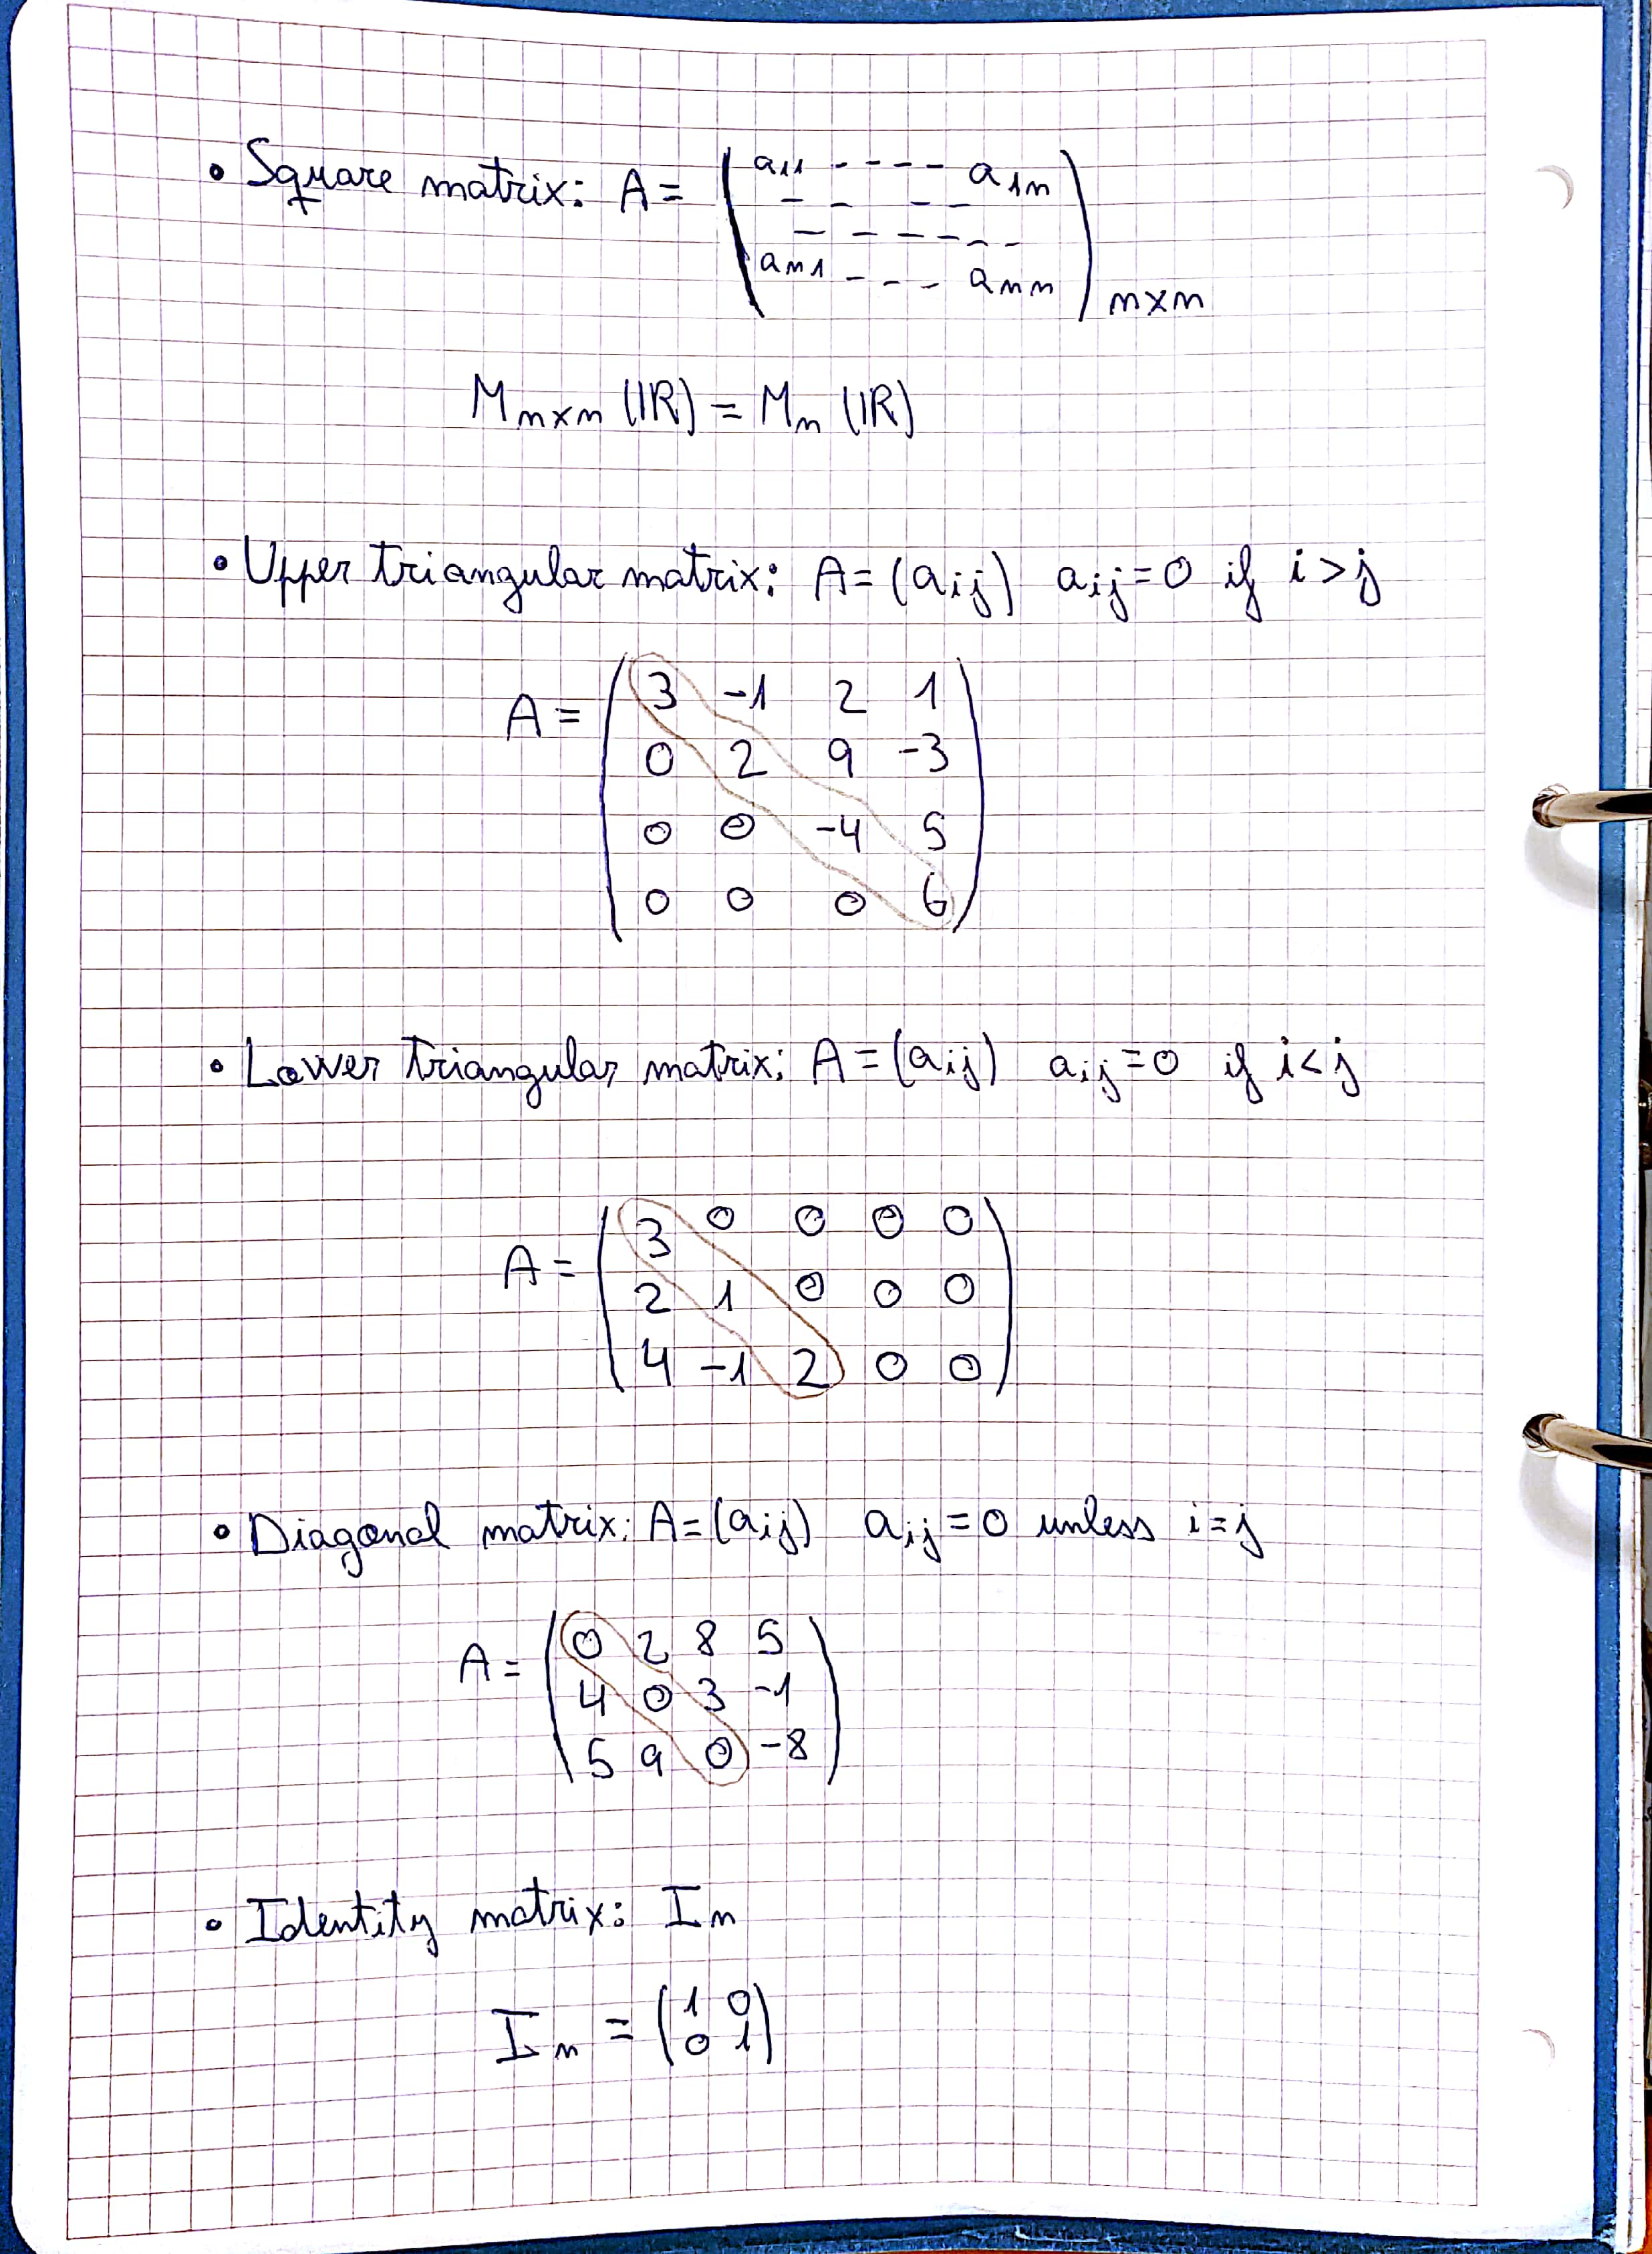 • Square matrix: A = ( a11 - - - - a1n
- - - -
- - - - - -
an1 - - - ann ) n×n
Mn×n (IR) = Mn (IR)
• Upper triangular matrix: A = (aij) aij = 0 if i > j
A = ( 3 -1 2 1
0 2 9 -3
0 0 -4 5
0 0 0 6 )
• Lower triangular matrix: A = (aij) aij = 0 if i < j
A = ( 3 0 0 0 0
2 1 0 0 0
4 -1 2 0 0 )
• Diagonal matrix: A = (aij) aij = 0 unless i = j
A = ( 0 2 8 5
4 0 3 -1
5 9 0 -8 )
• Identity matrix: In
In = ( 1 0
0 1 )